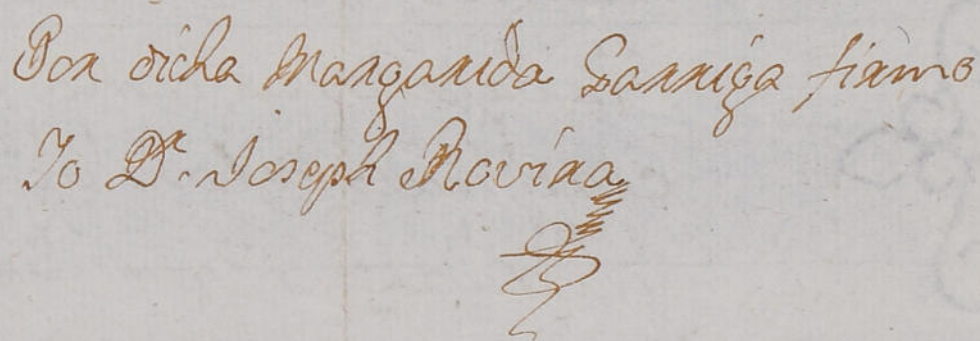 Por dicha Margarida Garriga firmo
Yo Dr. Joseph Rovira